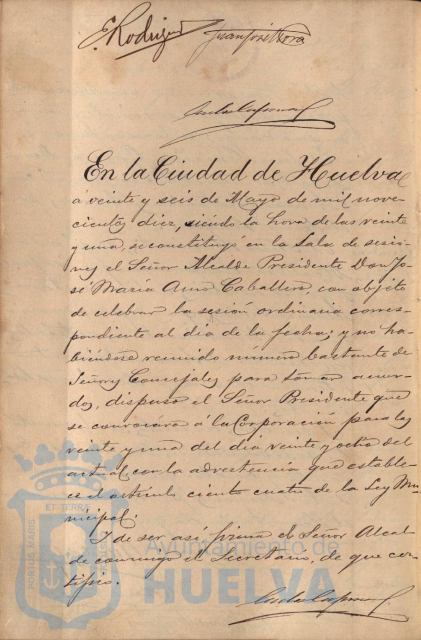 E. Rodriguez Juan José Mora
En la Ciudad de Huelva
á veinte y seis de Mayo de mil nove-
cientos diez, siendo la hora de las veinte
y una, se constituyó en la Sala de sesio-
nes el Señor Alcalde Presidente Don Jo-
sé María Amo Caballero, con objeto
de celebrar la sesión ordinaria corres-
pondiente al día de la fecha; y no ha-
biéndose reunido número bastante de
Señores Concejales para tomar acuer-
dos, dispuso el Señor Presidente que
se convocara á la Corporación para las
veinte y una del día veinte y ocho del
actual, con la advertencia que estable-
ce el artículo ciento cuatro de la Ley Mu-
nicipal.
Y de ser así firma el Señor Alcal-
de conmigo el Secretario, de que cer-
tifico.
PORTUS MARIS
ET TERRÆ
Ayuntamiento de
HUELVA